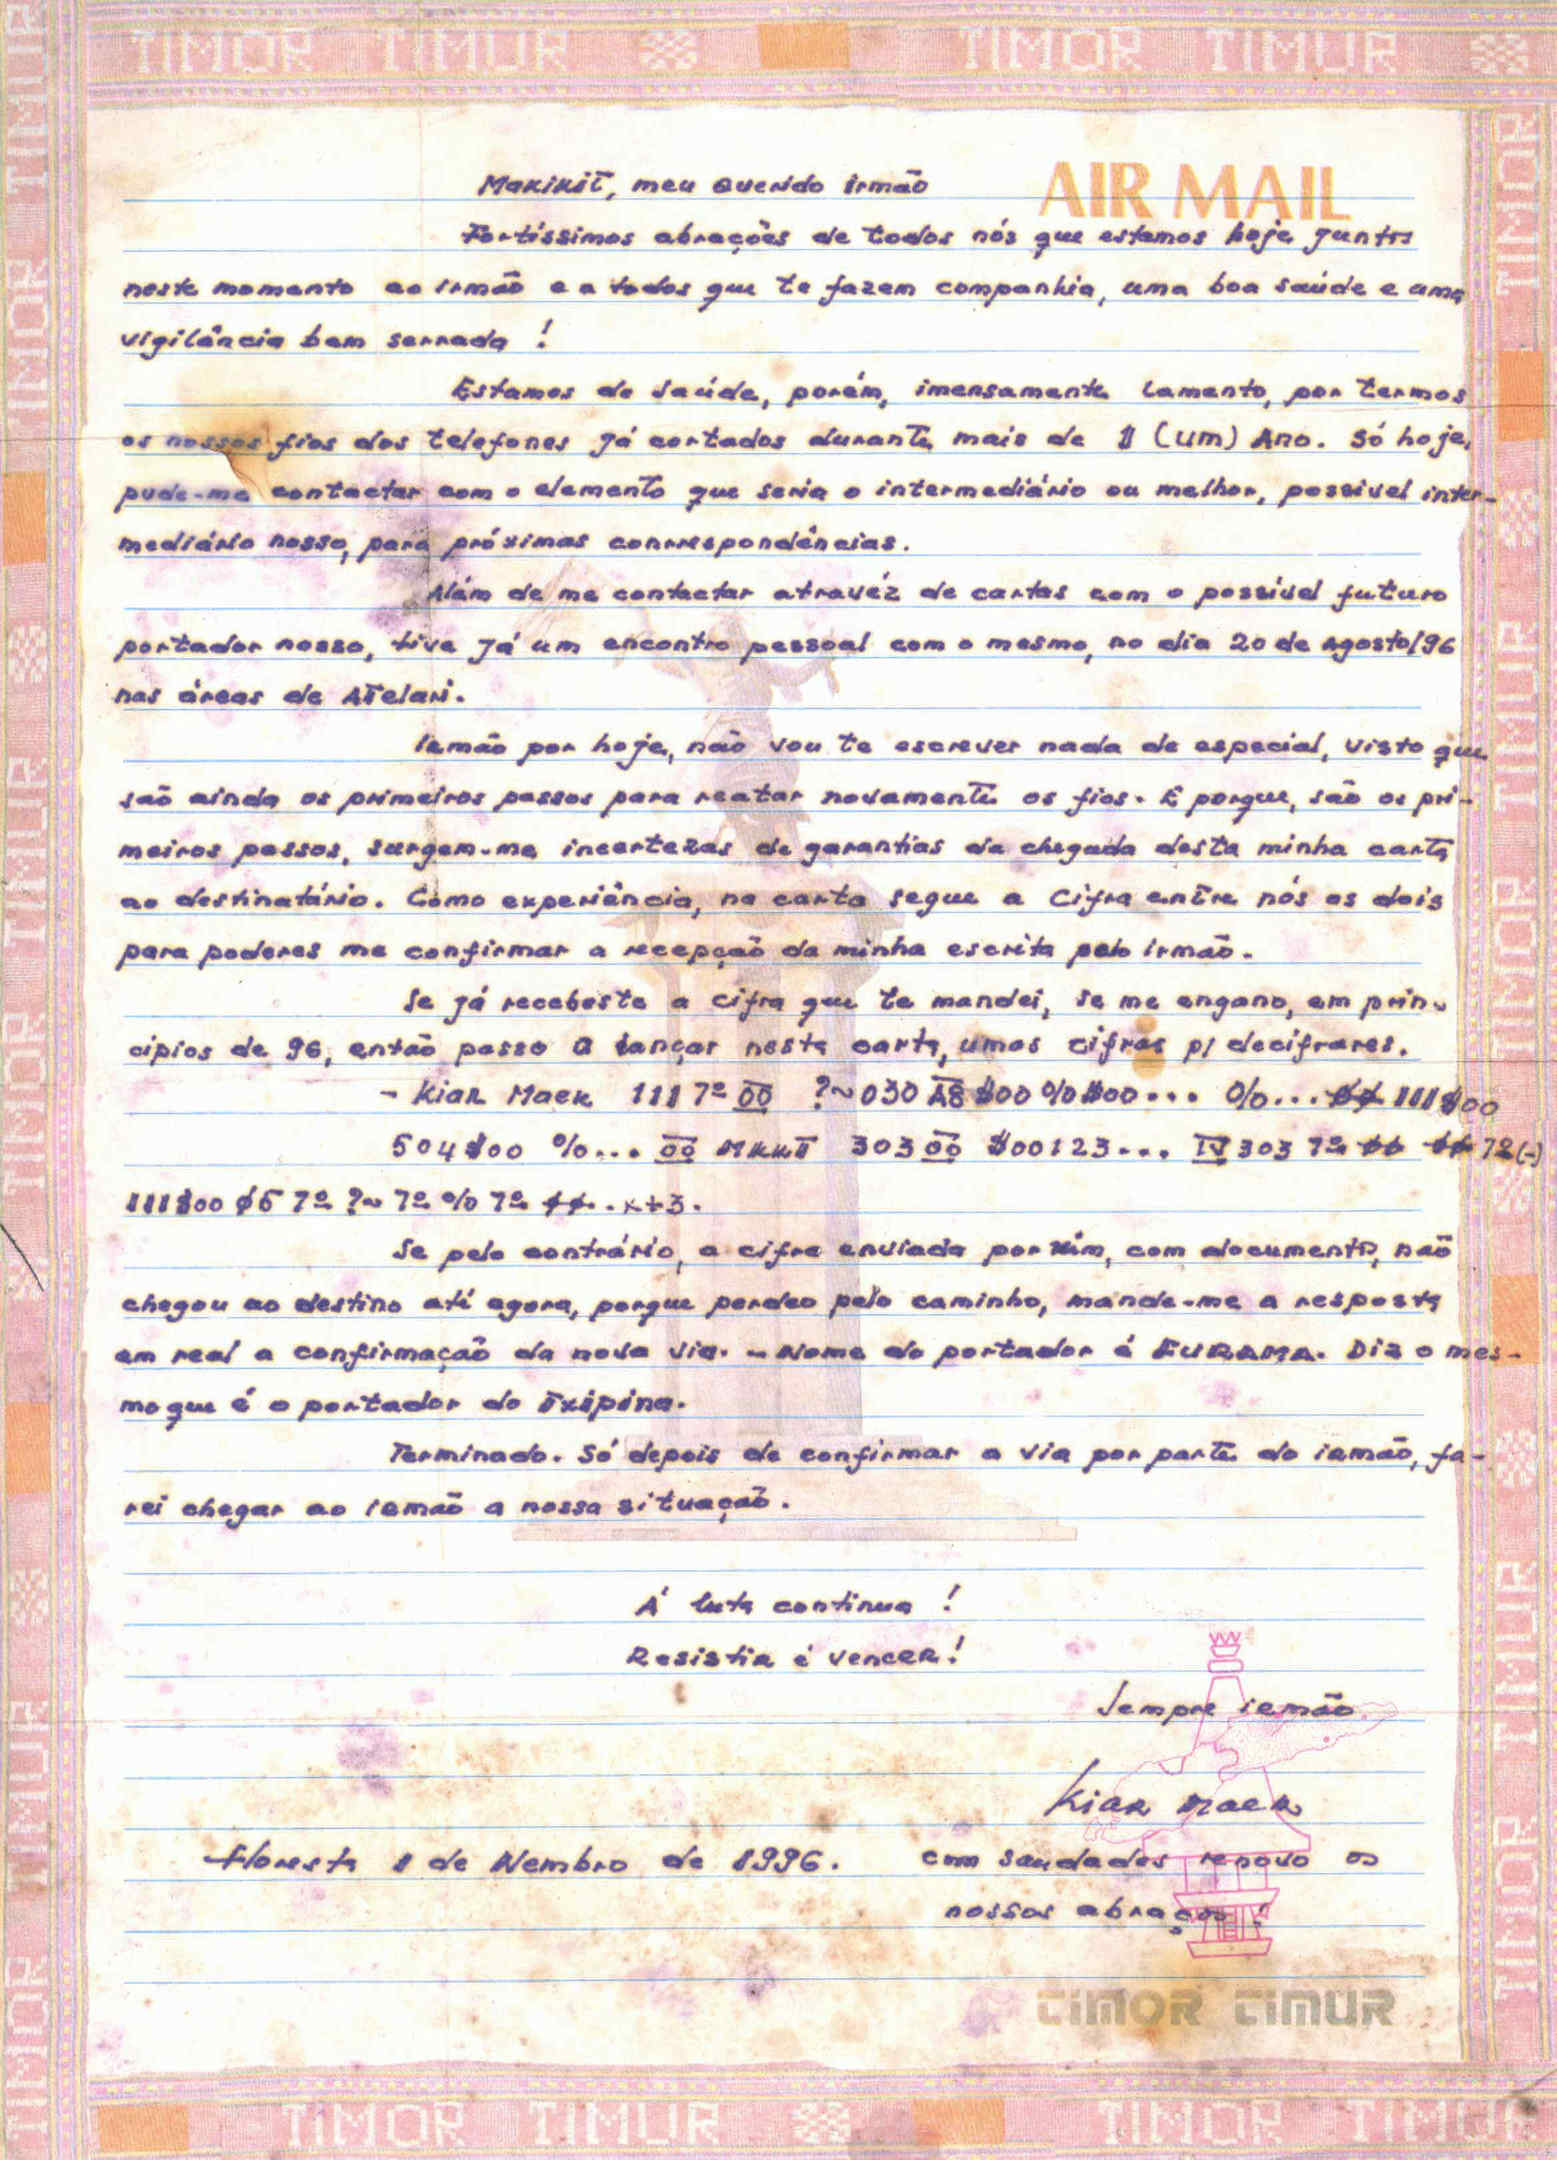 TIMOR TIMUR TIMOR TIMUR
AIR MAIL
Makikit, meu querido irmão
Fortíssimos abrações de todos nós que estamos hoje juntos
neste momento ao irmão e a todos que te fazem companhia, uma boa saúde e uma
vigilância bem serrada !
Estamos de saúde, porém, imensamente lamento, por termos
os nossos fios dos telefones já cortados durante mais de 1 (um) Ano. Só hoje,
pude-me contactar com o elemento que seria o intermediário ou melhor, possivel inter-
mediário nosso, para próximas conrrespondências.
Além de me contactar atravéz de cartas com o possivel futuro
portador nosso, tive já um encontro pessoal com o mesmo, no dia 20 de Agosto/96
nas áreas de Atelari.
Irmão por hoje, não vou te escrever nada de especial, visto que
são ainda os primeiros passos para reatar novamente os fios. E porque, são os pri-
meiros passos, surgem-me incertezas de garantias da chegada desta minha carta
ao destinatário. Como experiência, na carta segue a Cifra entre nós os dois
para poderes me confirmar a recepção da minha escrita pelo irmão.
Se já recebeste a cifra que te mandei, se me engano, em prin-
cipios de 96, então passo a lançar nesta carta, umas cifras p/ decifrares.
- Kiar Maek 111 7º 00 ?~030 A8 $00 %$00... %... ϕϕ 111$00
504$00 %... 00 MKKT 303 00 $00123... IV 303 7º ϕϕ ϕϕ 7º(-)
111$00 ϕ5 7º ?~ 7º % 7º ϕϕ..x+3.
Se pelo contrário, a cifra enviada por mim, com documento, não
chegou ao destino até agora, porque perdeo pelo caminho, mande-me a resposta
em real a confirmação da nova via. - Nome do portador é FURAMA. Diz o mes-
mo que é o portador do Txipina.
Terminado. Só depois de confirmar a via por parte do irmão, fa-
rei chegar ao irmão a nossa situação.
Á luta continua !
Resistir é vencer!
Sempre irmão
Kiar Maek
Floresta 1 de Nembro de 1996. com saudades renovo os
nossos abraços !
TIMOR TIMUR
TIMOR TIMUR TIMOR TIMUR